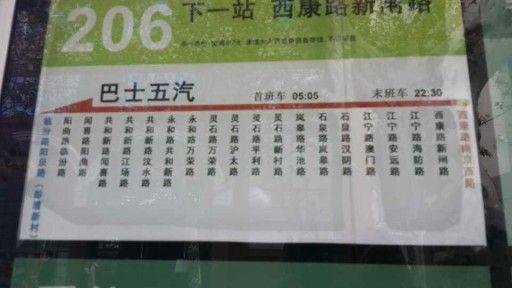 206
下一站 西康路新闸路
巴士五汽
首班车 05:05
末班车 22:30
临汾路阳泉路(临汾新村)
阳曲路临汾路
闻喜路阳曲路
共和新路闻喜路
共和新路江场路
共和新路汶水路
永和路共和新路
永和路万荣路
灵石路万荣路
灵石路沪太路
灵石路平利路
灵石路新村路
岚皋路华池路
石泉路岚皋路
石泉路汉阴路
江宁路澳门路
江宁路安远路
江宁路海防路
西康路新闸路
西康路南京西路